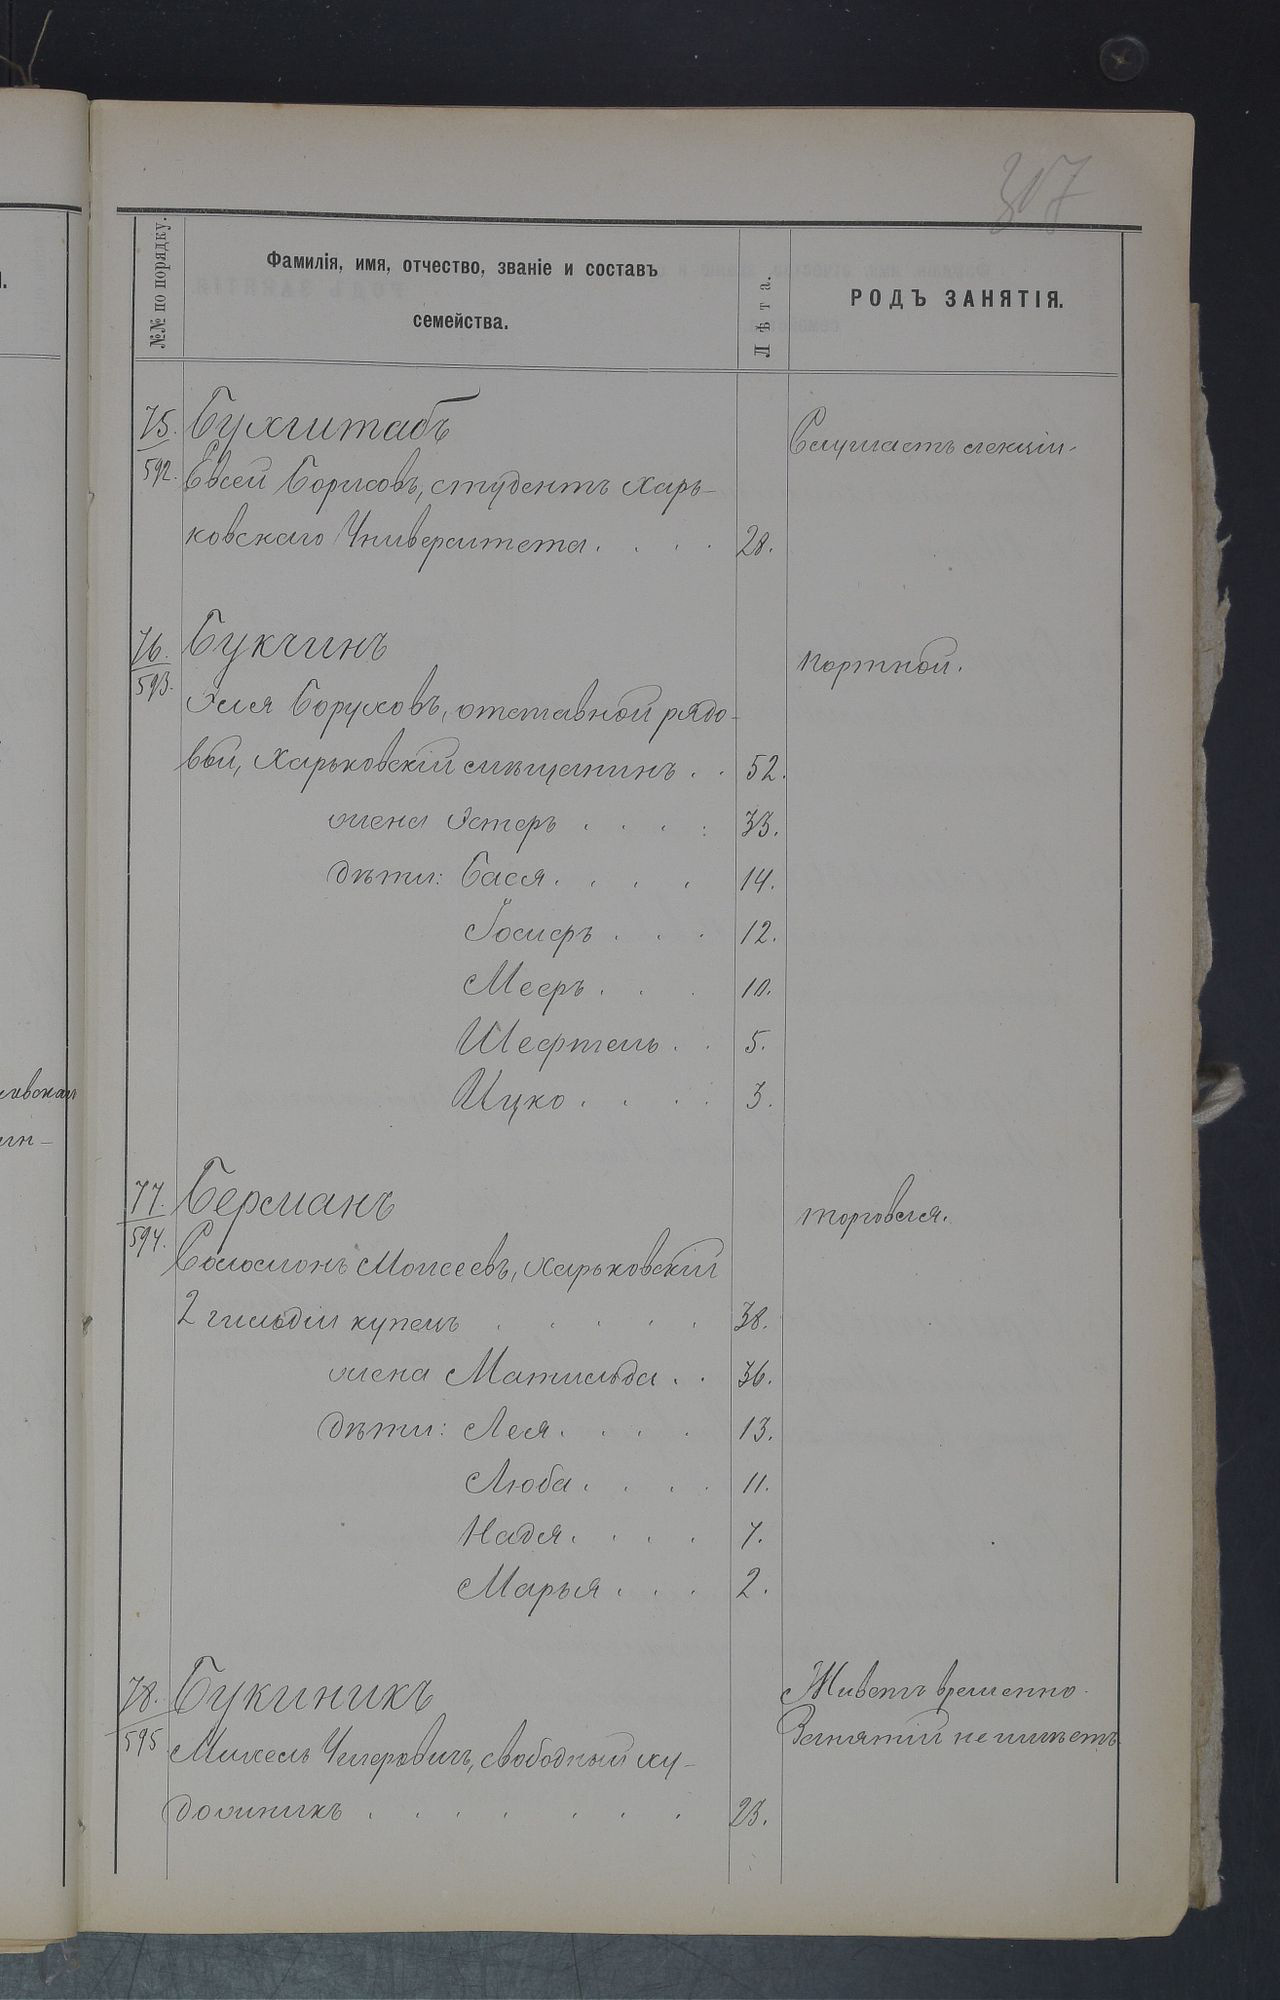 307
№№ по порядку.
Фамилія, имя, отчество, званіе и составъ
семейства.
Лѣта.
РОДЪ ЗАНЯТІЯ.
75. Бухштабъ
Слушаетъ лекціи.
592. Евсей Борисовъ, студентъ Харь-
ковскаго Университета . . . . 28.
76. Букчинъ
портной.
593. Эля Боруховъ, отставной рядо-
вой, Харьковскій мѣщанинъ . . 52.
жена Эстеръ . . . . 33.
дѣти: Бася . . . . 14.
Іосифъ . . . 12.
Мееръ . . . 10.
Шефтель . . 5.
Ицко . . . . 3.
77. Берманъ
торговля.
594. Соломонъ Моисеевъ, Харьковскій
2 гильдіи купецъ . . . . . 38.
жена Матильда . . 36.
дѣти: Лея . . . . 13.
Люба . . . . 11.
Надя . . . . 7.
Марья . . . 2.
78. Букиникъ
Живетъ временно.
Занятій не имѣетъ.
595 Михель свободный ху-
дожникъ . . . . . . . 23.